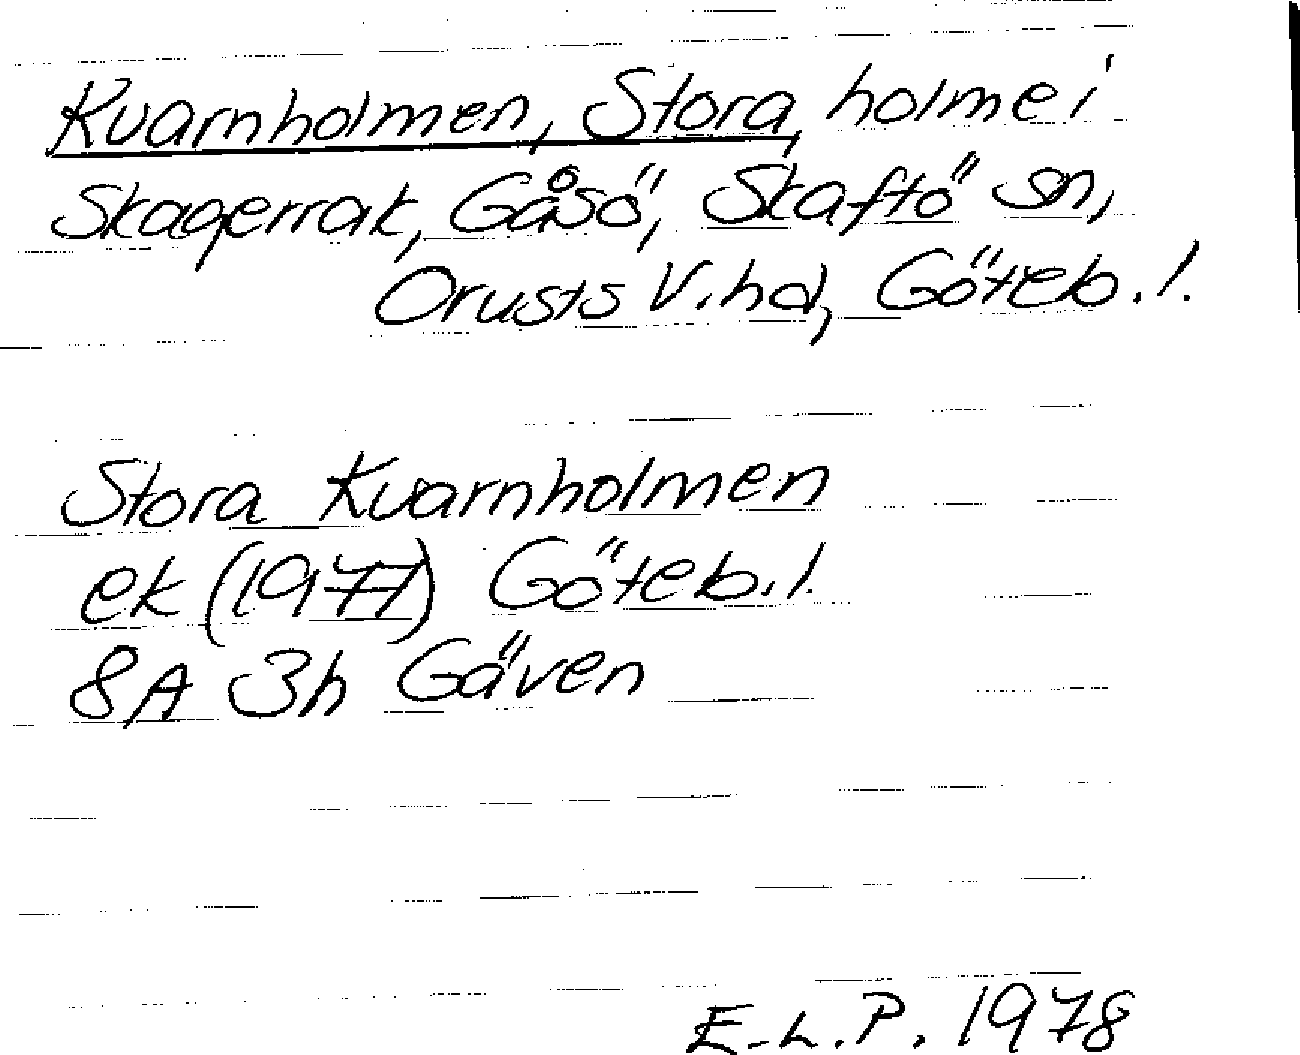 Kvarnholmen, Stora, holme i
Skagerrak, Gåsö, Skaftö sn,
Orusts V. hd, Göteb. l.
Stora Kvarnholmen
ek (1977) Göteb. l.
8A 3h Gäven
E.L.P. 1978